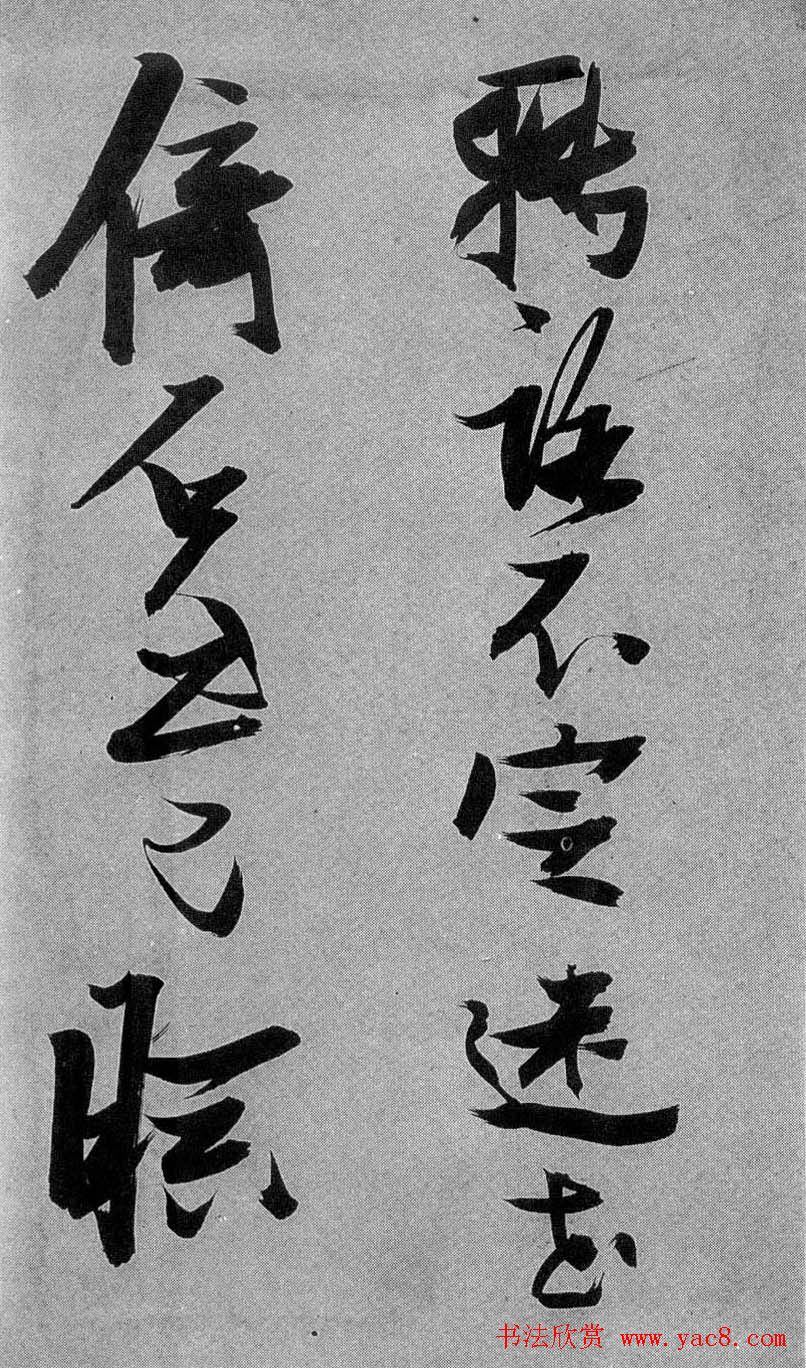 轉路不定迷花
倚石忽已暝
书法欣赏 www.yac8.com